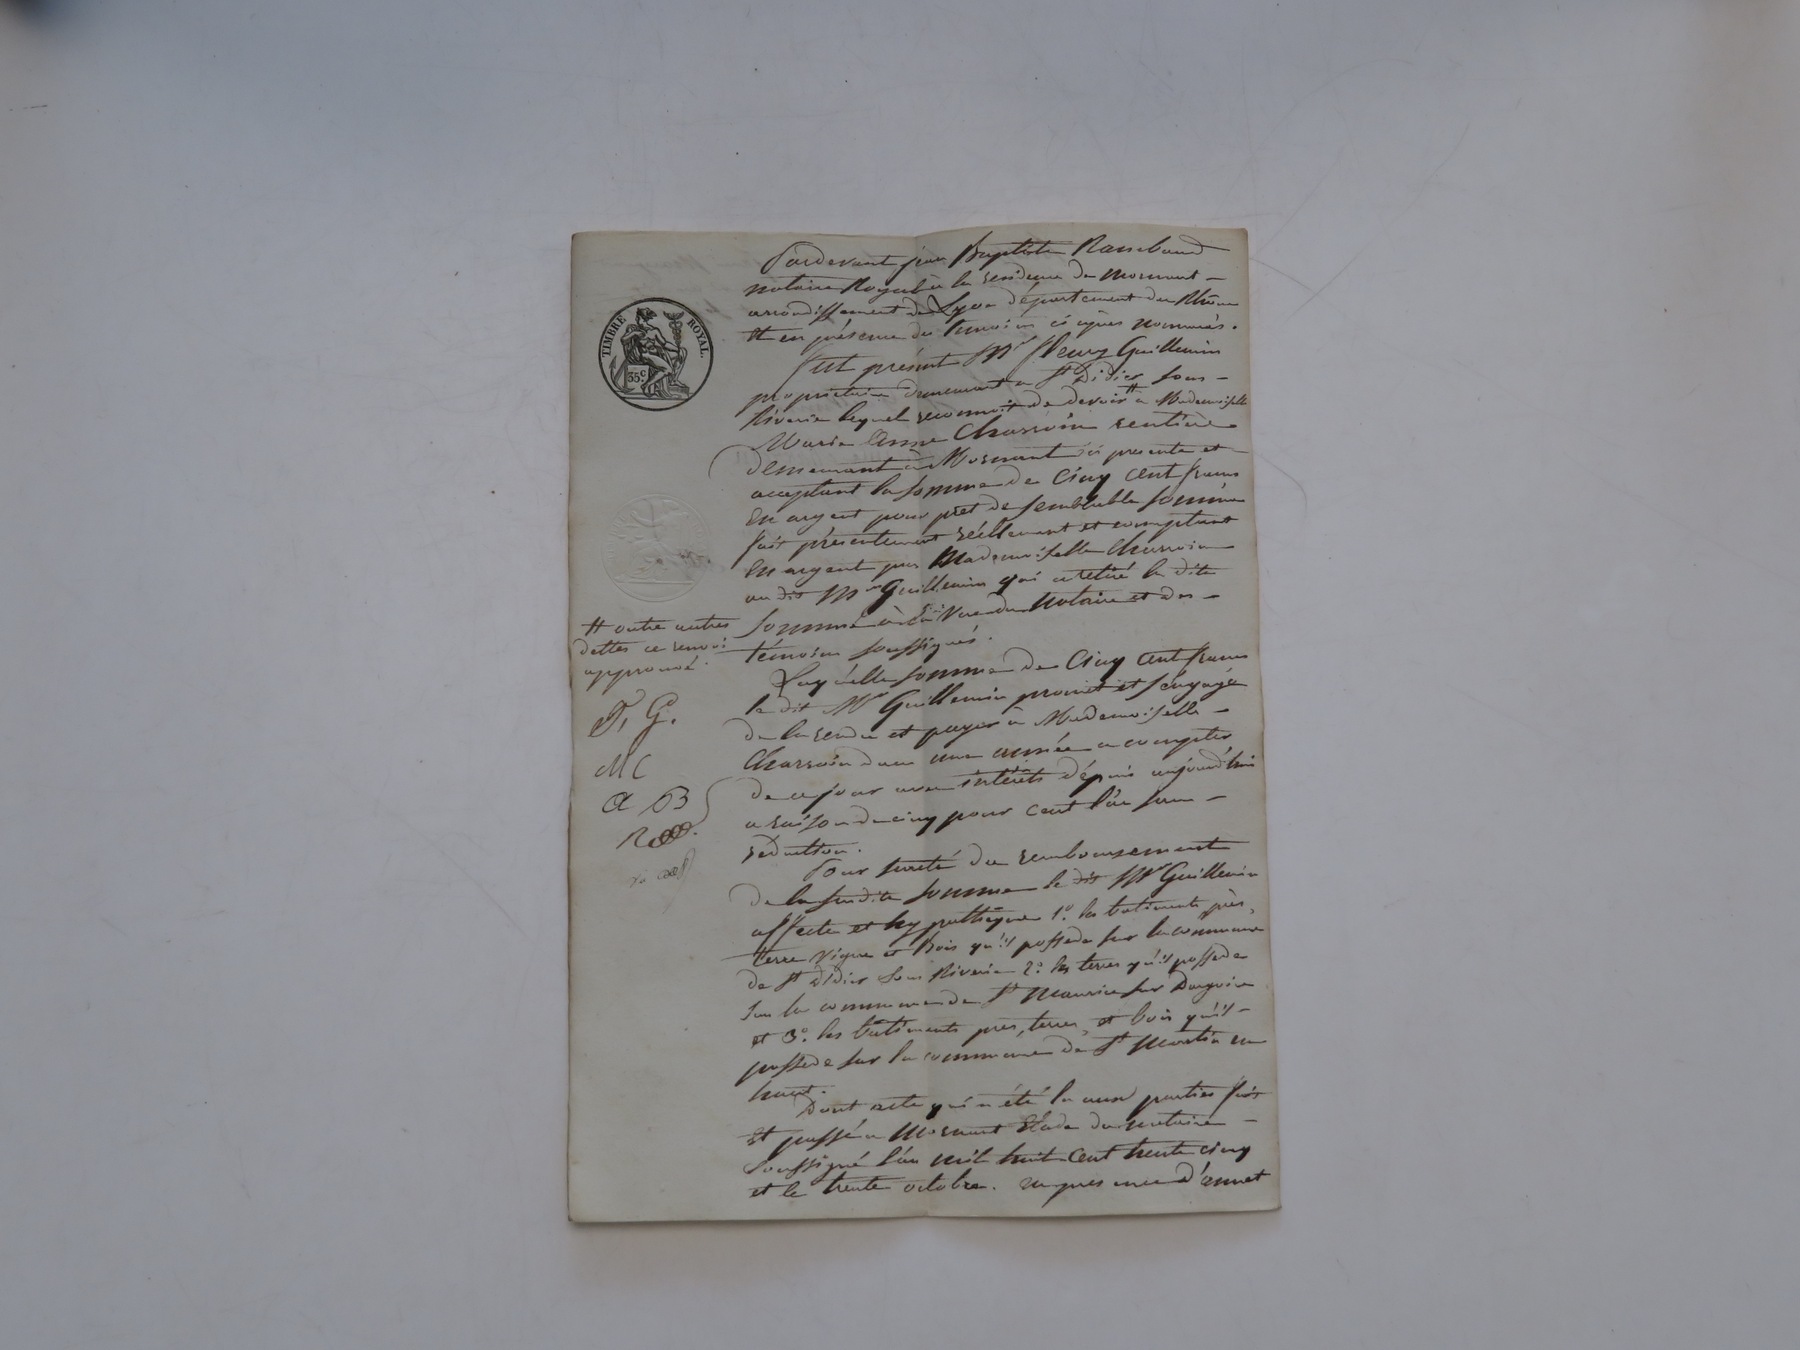 TIMBRE ROYAL.
35 c
Pardevant jean Baptiste Rambaud
notaire Royal à la residence de Mornant
arrondissement de Lyon département du Rhône
Et en présence des temoins ci après nommés.
fut présent Mr fleury Guillermin
propriétaire demeurant a St Didier sous
Riverie lequel reconnoit de devoir # a Mademoiselle
Marie Anne Charvoin rentière
demeurant à Mornant ici presente et
acceptant la somme de Cinq cent francs
En argent pour prêt de semblable somme
fait présentement réellement et comptant
En argent par Mademoiselle Charvoin
au dit Mr Guillermin qui a retiré la dite
somme à la Vue du Notaire et des
témoins soussignés.
Laquelle somme de Cinq cent francs
le dit Mr Guillermin promet et s'engage
de la rendre et payer à Mademoiselle
Charvoin dans une année a compter
de ce jour avec intérêts dépuis aujourd'hui
a raison de cinq pour cent l'an sans
réduction.
Pour sureté du remboursement
de la susdite somme le dit Mr Guillermin
affecte et hypothèque 1°. les batiments près,
terre vigne et Bois qu'il possede sur la commune
de St didier sous Riverie 2°. les terres qu'il possede
sur la commune de St Maurice sur Dargoire
et 3°. les bâtiments près, terres, et bois qu'il
possede sur la commune de St Martin en
haut.
Dont acte qui a été lu aux parties fait
Et passé a Mornant Etude du notaire
soussigné l'an mil huit cent trente cinq
et le trente octobre. en présence d'
# outre autres
dettes ce renvoi
approuvé.
F, G.
MC
a B
R